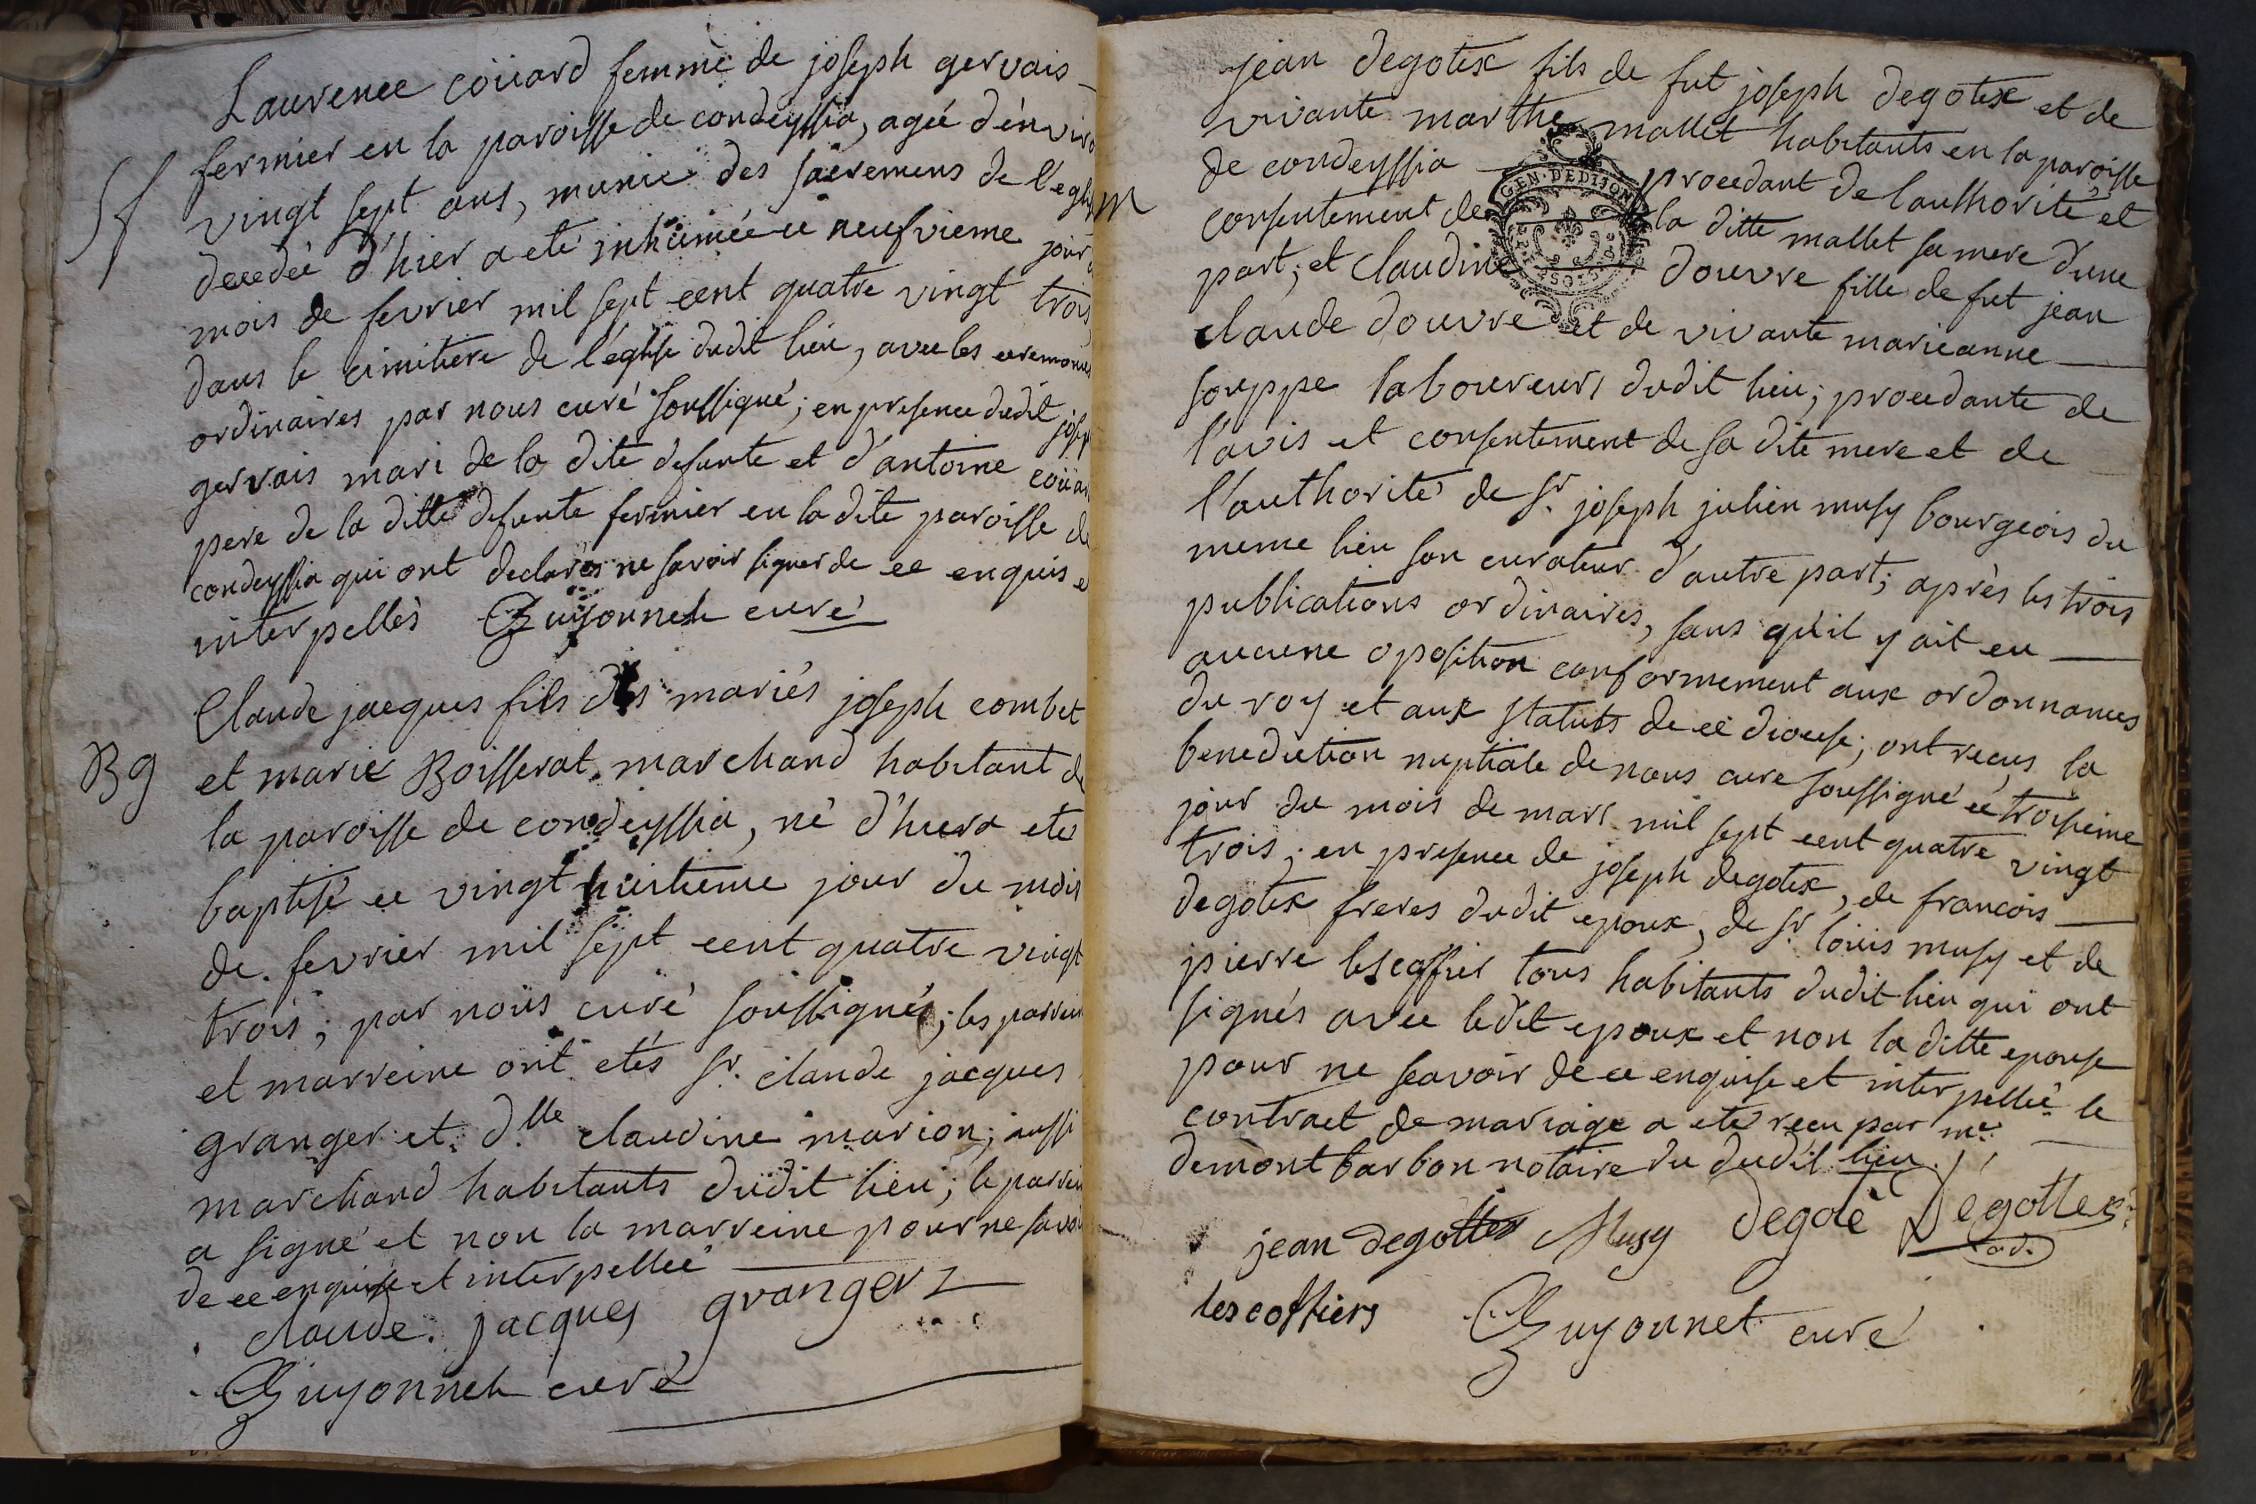 Laurence coüard femme de joseph gervais
Sf
fermier en la paroisse de condeyssia, ageé d'enviro
vingt sept ans, munie des sacremens de l'eglis
decedeé d'hier a eté inhumeé ce neufvieme jour d
mois de fevrier mil sept cent quatre vingt trois
dans le cimitiere de l'eglise dudit lieu, avec les ceremonies
ordinaires par nous curé soussigné; en presence dudit josep
gervais mari de la dite defunte et d'antoine coüar
pere de la ditte defunte fermier en la dite paroisse de
condeyssia qui ont declarés ne savoir signer de ce enquis e
interpellés Guyonnet curé
Claude jacques fils des mariés joseph combet
Bg
et marie Boisserat marchand habitant de
la paroisse de condeyssia, né d'hier a eté
baptisé ce vingt huitieme jour du mois
de fevrier mil sept cent quatre vingt
trois; par nous curé soussigné; les parrein
et marreine ont etés Sr. claude jacques
granger et dlle claudine marion; aussi
marchand habitants dudit lieu; le parrein
a signé et non la marreine pour ne savoi
de ce enquise et interpellée
claude jacques granger
Guyonnet curé
M
jean degotex fils de fut joseph degotex et de
vivante marthe mallet habitants en la paroisse
de condeyssia procedant de l'authorité et
consentement de la ditte mallet sa mere d'une
part; et claudine douvre fille de fut jean
GEN. DE DIJON
claude douvre et de vivante marieanne
souppe laboureurs dudit lieu; procedante de
l'avis et consentement de sa dite mere et de
l'authorité de Sr. joseph julien musy bourgeois du
meme lieu son curateur d'autre part; après les trois
publications ordinaires, sans qu'il y ait eu
aucune oposition conformement aux ordonnances
du roy et aux statuts de ce diocese; ont reçus la
benediction nuptiale de nous curé soussigné ce troisieme
jour du mois de mars mil sept cent quatre vingt
trois; en presence de joseph degotex, de francois
degotex freres dudit epoux, de Sr. loüis musy et de
pierre lescoffier tous habitants dudit lieu qui ont
signés avec ledit epoux et non la ditte epouse
pour ne scavoir de ce enquise et interpelleé le
contract de mariage a eté recu par me
demontbarbon notaire du dudit lieu.
jean degottex Musy degotè Degottex
lescoffiers Guyonnet curé